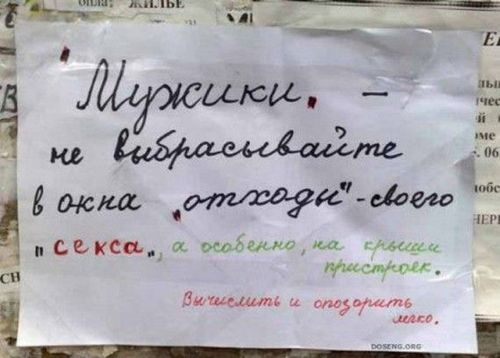 ЖИЛЬЕ
"Мужики". –
не выбрасывайте
в окна „отходы"-своего
"секса„, а особенно, на крыши
пристроек.
Вычислить и опозорить
легко.
DOSENG.ORG